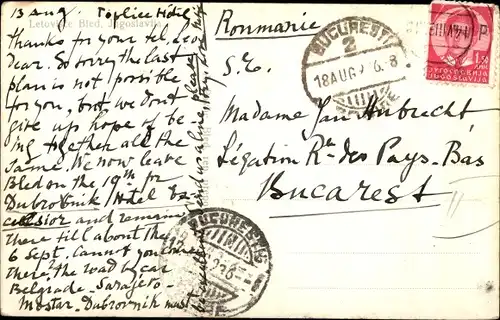 13 Aug. Toplice Hotel
Letovišče Bled, Jugoslavija
Thanks for your tel.
Dear. So sorry the last
plan is not possible
for you, but we don't
give up hope of be-
ing together all the
same. We now leave
Bled on the 19th for
Dubrovnik Hotel Ex-
celsior and remain
there till about the
6 Sept. Cannot you come
there, the road by car
Belgrade - Sarajevo -
Mostar - Dubrovnik must
Roumanie
S. E.
Madame Jan Hubrecht
Légation Rle des Pays-Bas
Bucarest
BUCUREȘTI
2
18 AUG
BUCUREȘTI
1.50
ЈУГОСЛАВИЈА
JUGOSLAVIJA